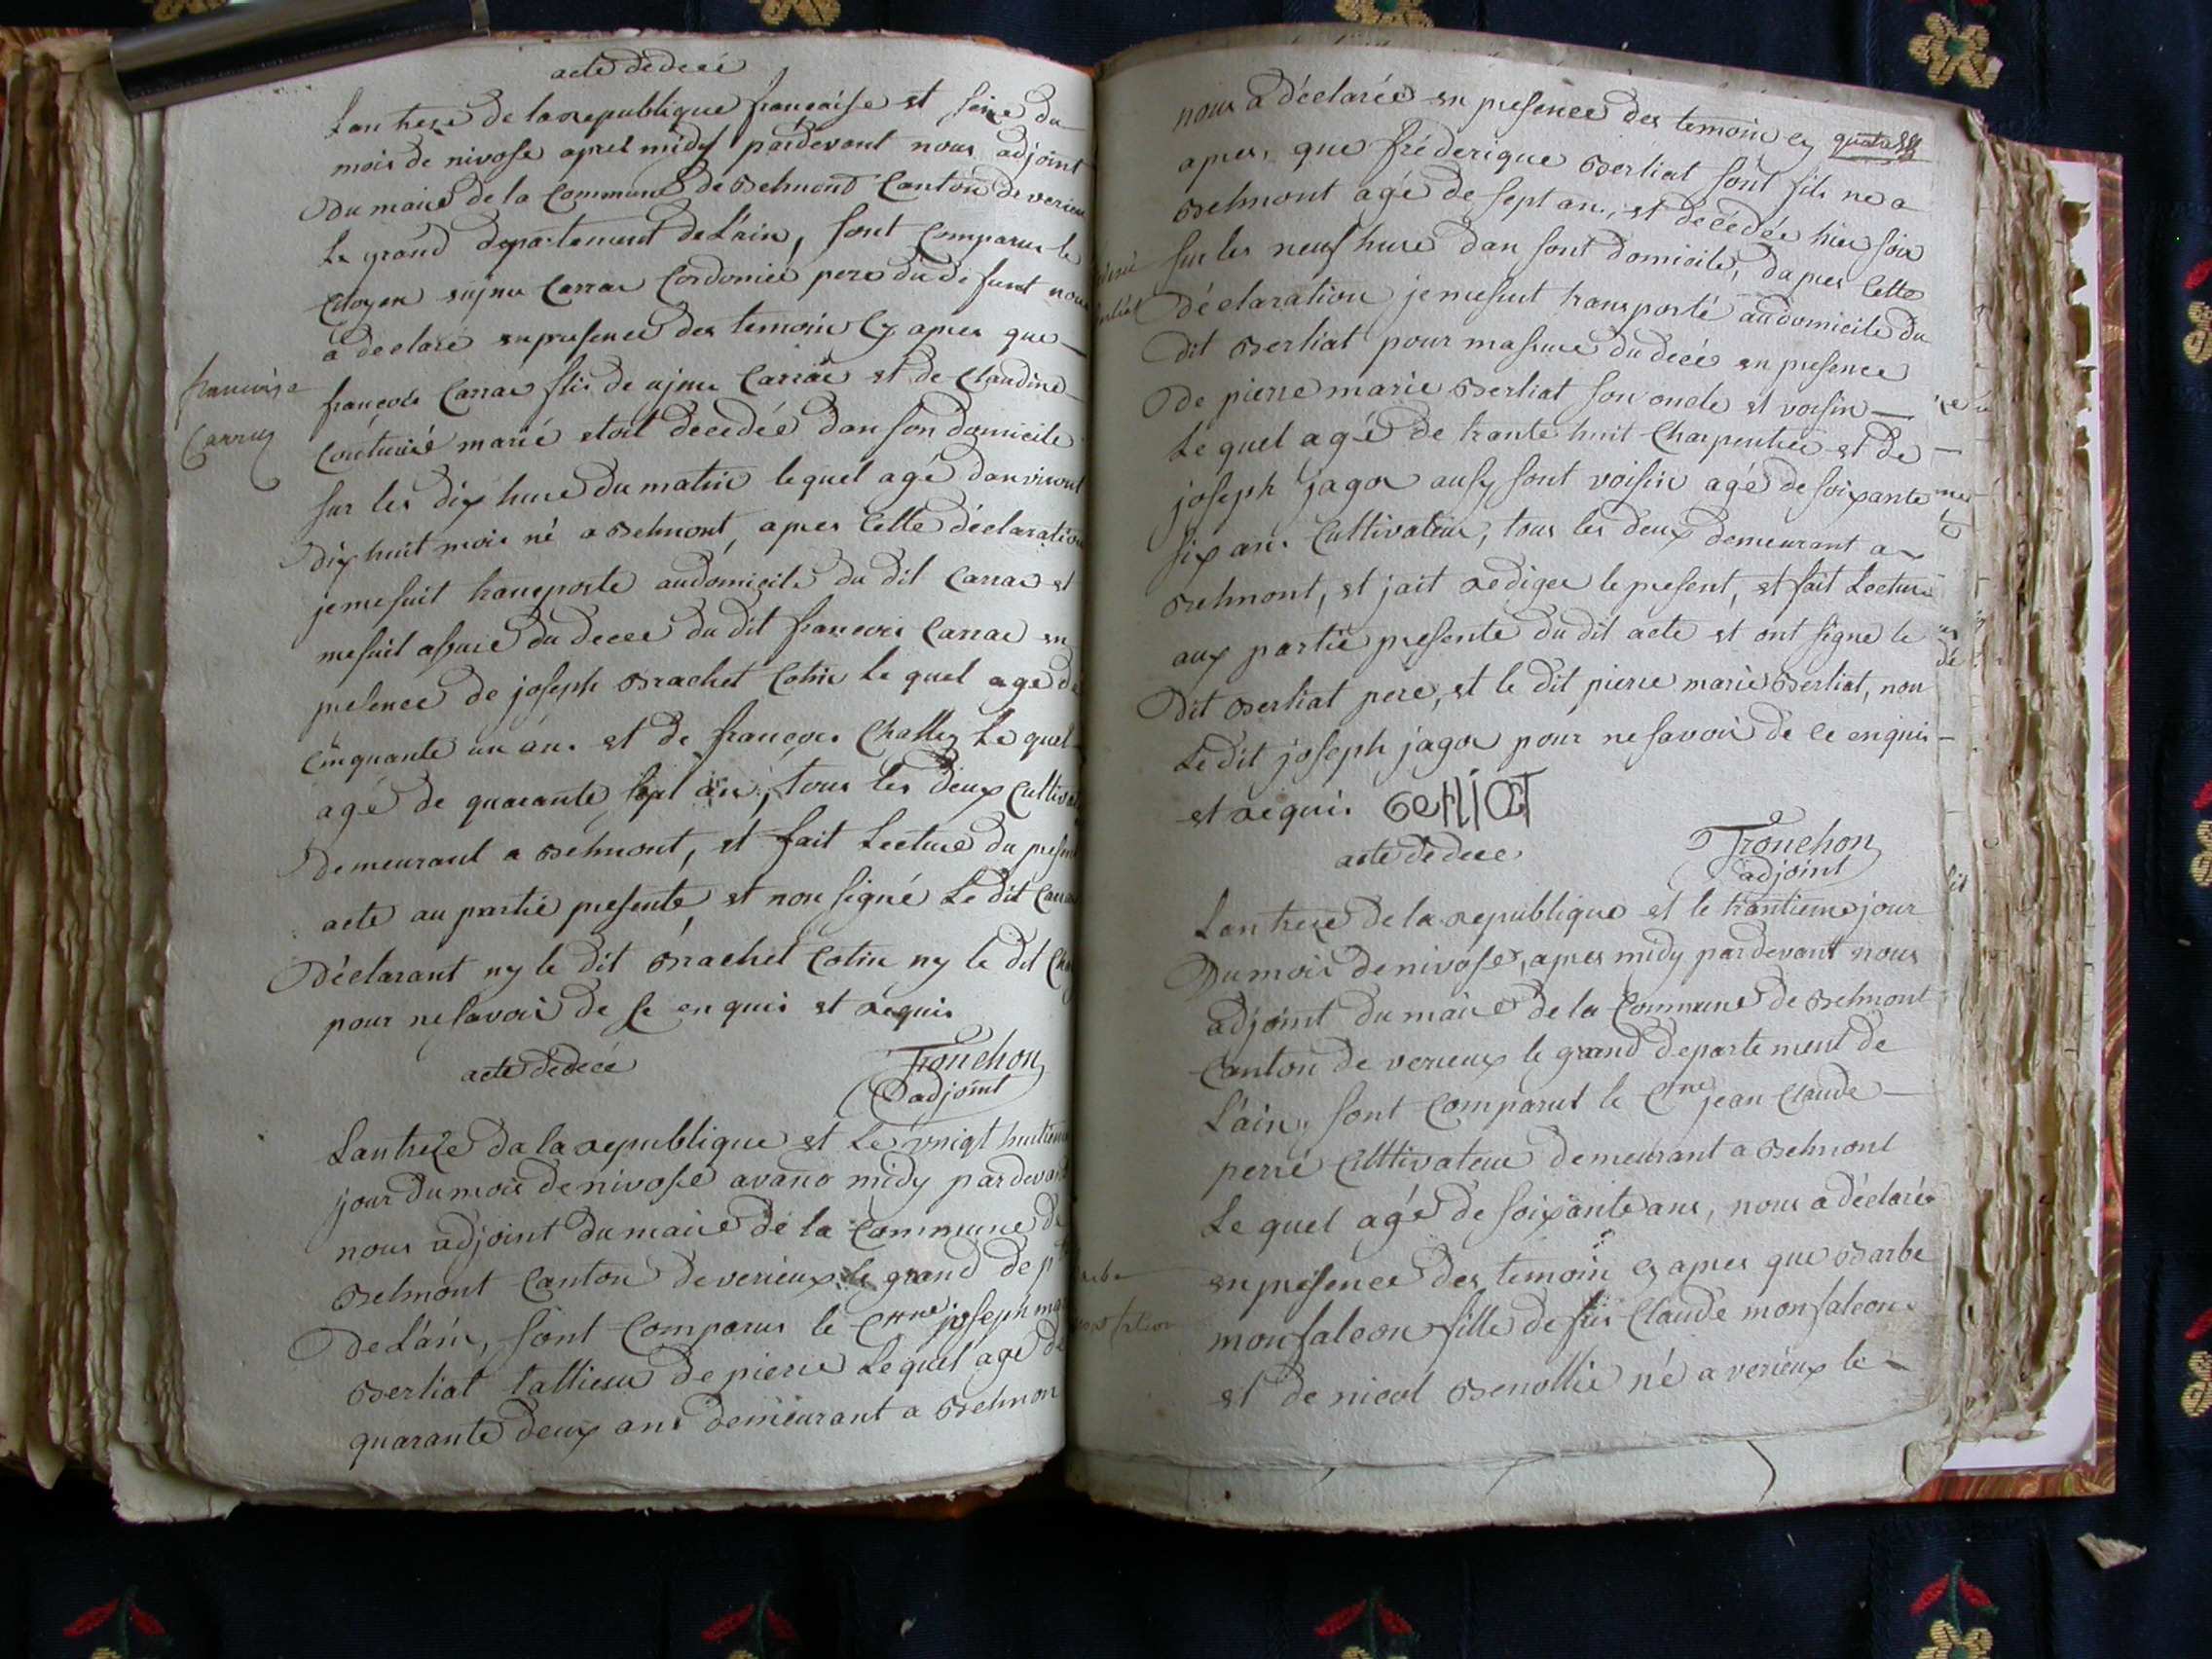 acte de decé
Lan treze de la republique française et seize du
mois de nivose apres midy pardevant nous adjoint
du maire de la Commune de Belmont Canton de verieu
le grand departement de L'ain, sont Comparus le
Citoyen Carrac Cordonier pere du defunt nous
a declaré en presence des temoin Cy apres que
françois Carrac fils de Carrac et de Claudine
Couturié marié etoit decedée dan son domicile
sur les dix hure du matin lequel agé danviront
dix huit mois né a Belmont, apres Cette déclaration
je me suit transporte au domicile du dit Carrac et
me suit assuré du decee du dit francois Carrac en
presence de joseph Brachet Cotin Le quel agé de
Cinquante un an. et de françois Challey Le quel
agé de quarante sept an, tous les deux Cultiva
demeurant a Belmont, et fait Lecture du presen
acte au partie presente, et non signé Le dit Carra
déclarant ny le dit Brachet Cotin ny le dit Cha
pour ne savoir de Ce enquis et requis
Tronchon
adjoint
acte de decé
francoise
Carraz
Lan treze da la republique et Le vnigt huitiem
jour du mois de nivose avant midy pardevant
nous adjoint du maire de la Commune de
Belmont Canton de verieux le grand dep
de L'ain, sont Comparus le joseph ma
Berliat tallieur de pierre Lequel agé de
quarante deux ans demeurant a Belmon
nous a déclarée en presence des temoin Cy
apres, que fréderique Berliat sont fils ne a
Belmont agé de sept an, et décédée hier soir
sur les neuf hure dan sont domicile, dapres Cette
déclaration je me suit transporté au domicile du
dit Berliat pour massure du decé en presence
de pierre marie Berliat son oncle et voisin
Le quel agé de trante huit Charpentier et de
joseph jagou ausy sont voisin agé de soixante
six an. Cultivateur, tous les deux demeurant a
Belmont, et jait rediger le present, et fait Lecture
aux partie presente du dit acte et ont signe le
dit Berliat pere, et le dit pierre marie Berliat, non
Le dit joseph jagou pour ne savoir de Ce enquis
et requis
berliat
acte de decé
Tronchon
adjoint
Lan treze de la republique et le trantieme jour
du mois de nivose, apres midy pardevant nous
adjoint du maire de la Commune de Belmont
Canton de verieux le grand departement de
L'ain, sont Comparut le jean Claude
perré Culttivateur demeurant a Belmont
Le quel agé de soixante ans, nous a déclarée
en presence des temoin Cy apres que Barbe
monfalcon fille de Claude monfalcon
et de nicol Benollie né a verieux le